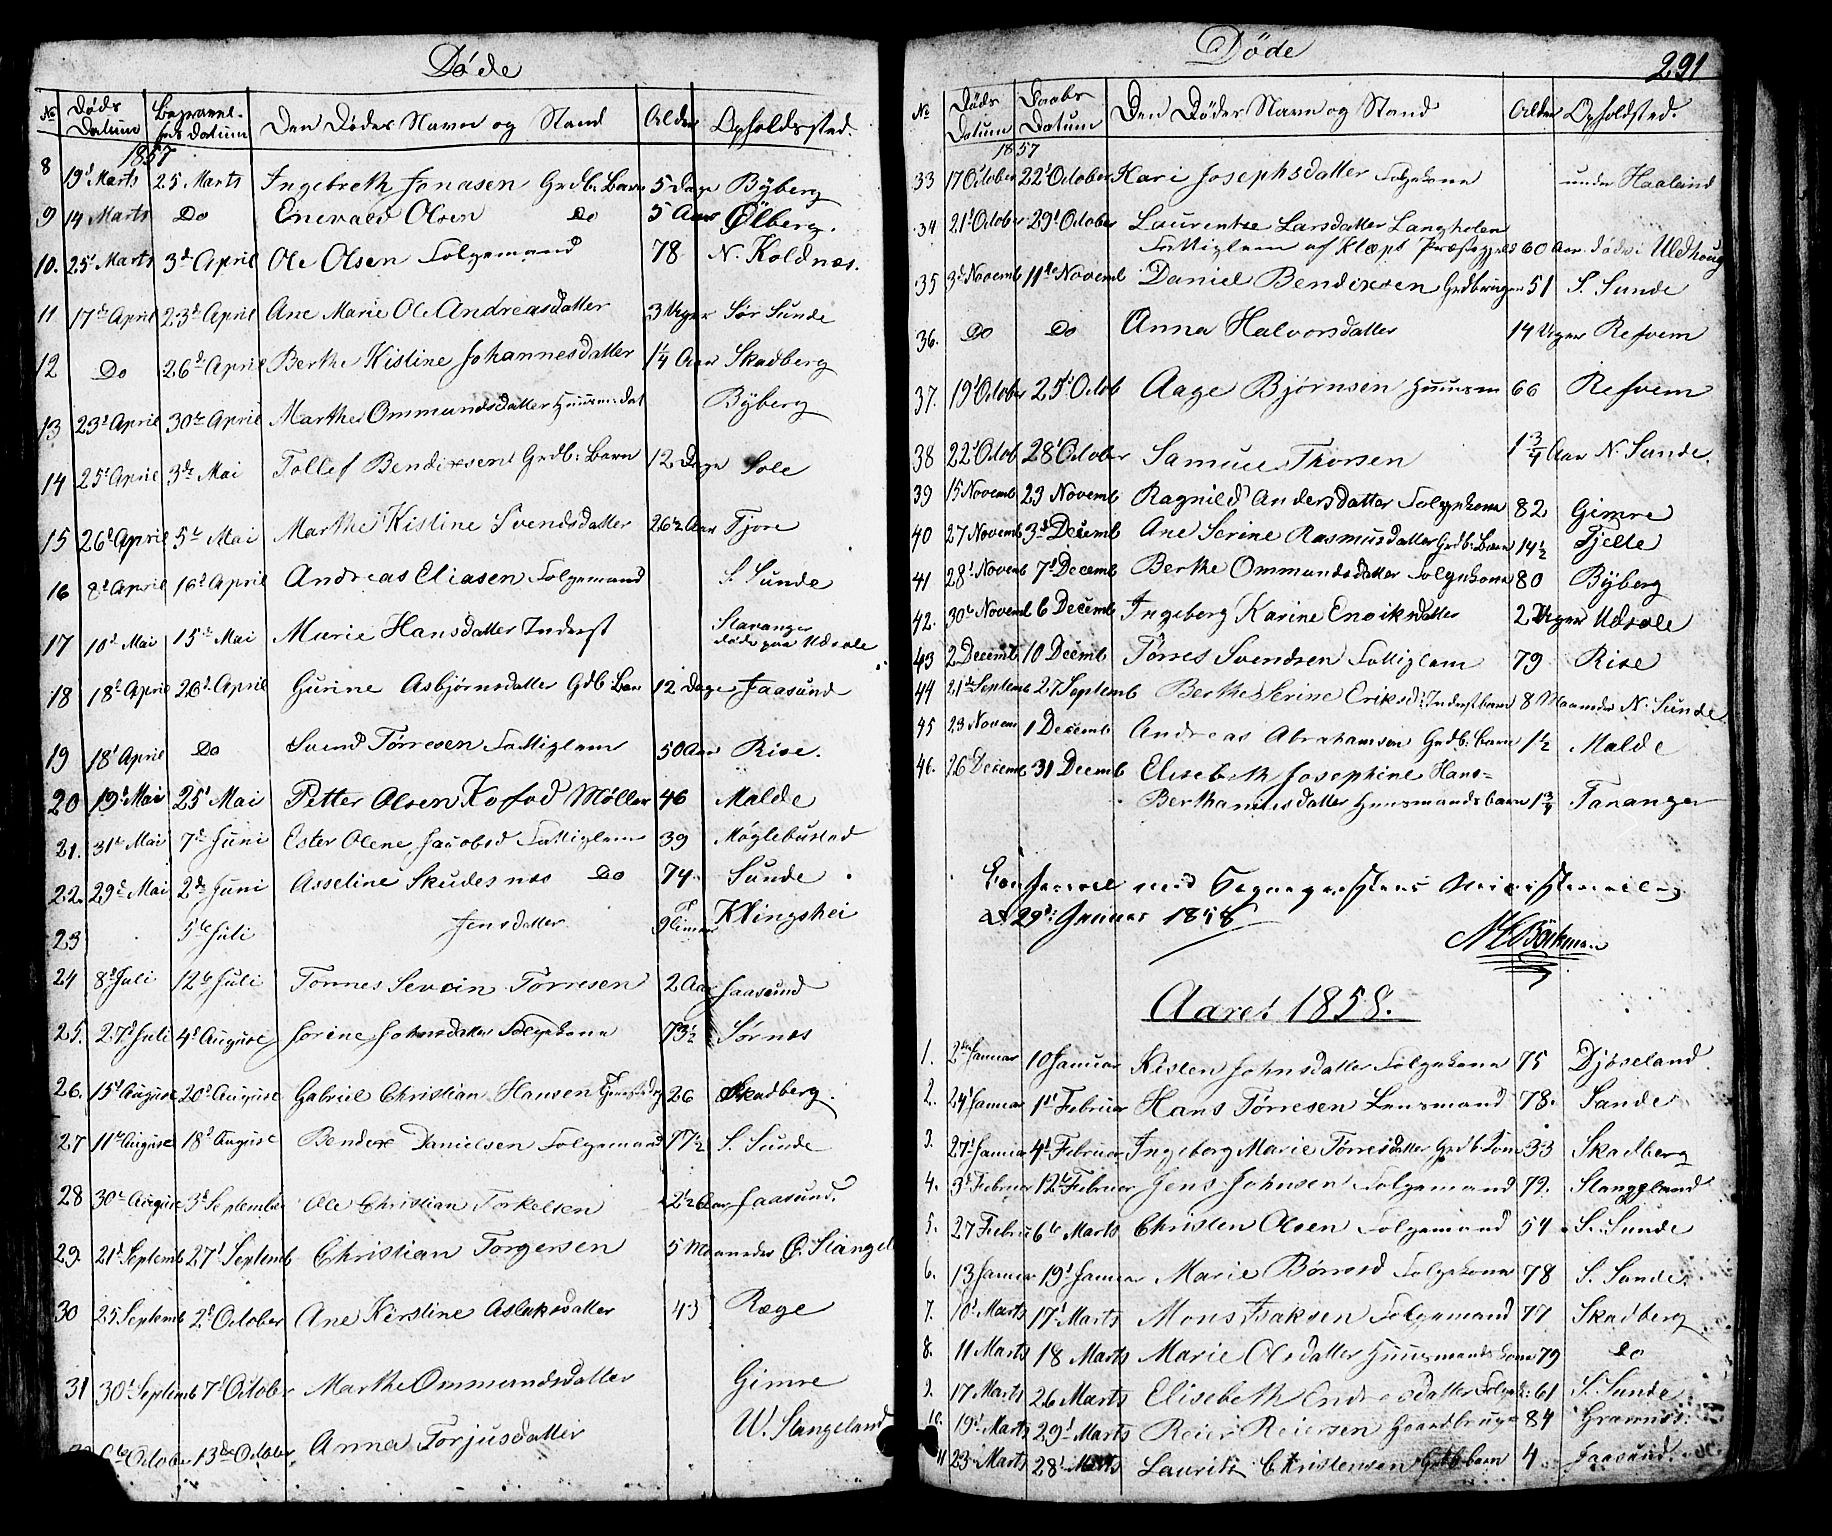 Døde
№ Døds Datum Begravel-ses Datum Den Dødes Navn og Stand Alder Opholdssted.
1857
8 19d Marts 25 Marts Ingebreth Jonasen Grdb: Barn 5 Dage Byberg
9 14 Marts Do Enevald Olsen Do 5 Aar Ølberg.
10. 25d Marts 3d April Ole Olsen Folgemand 78 N. Koldnæs.
11 17de April 23d April Ane Marie Ole Andreasdatter 3 Uger Sør Sunde
12 Do 26d April Berthe Kistine Johannesdatter 1¼ Aar Skadberg
13 23d April 30te April Marthe Ommundsdatter Huusm: dat Byberg
14 25d April 3de Mai Tollef Bendixsen Grdb: Barn 12 Dage Sole
15 26d April 5te Mai Marthe Kistine Svendsdatter 26½ Aar Tjore
16 8d April 16d April Andreas Eliasen Folgemand S. Sunde
17 10d Mai 15de Mai Marie Hansdatter Inderst Stavanger
døde paa Udsole
18 18d April 26d April Gurine Asbjørnsdatter Gdb Barn 12 Dage Jaasund
19 18d April Do Svend Tørresen Fattiglem 50 Aar Rise.
20 19d Mai 25d Mai Petter Olsen Kofod Møller 46 Malde
21. 31te Mai 7d Juni Ester Olene Jacobsd Fattiglem 39 Møglebustad
22. 29d Mai 2de Juni Asseline Skudesnæs Do 74. Sunde.
23 5te Juli Jensdatter 9 Timer Klingshei
24 8d Juli 12te Juli Tønnes Sevrin Tørresen 2 Aar Jaasund
25. 27d Juli 4d August Jorine Johnsdatter Folgekone 73½ Sørnæs
26. 15d August 20d August Gabriel Christian Hansen 26 Skadberg.
27 11te August 18d August Bendix Danielsen Folgemand 77½ S. Sunde
28 30te August 3d September Ole Christian Torkelsen 2½ Aar Jaasund.
29. 21d Septemb 27d Septemb Christian Torgersen 5 Maaneder Ø. Stangel
30 25 Septemb 2d October Ane Kirstine Aslaksdatter 43 Ræge
31 30d Septemb 7d October Marthe Ommundsdatter Gimre
6te October 13de October Anna Torjusdatter W. Stangeland
Døde
291
№ Døds Datum Daabs Datum Den Dødes Navn og Stand Alder Opholdsted.
1857
33 17 October 22d October Kari Josephsdatter Folgekone under Haaland
34 21d October 29d October Laurentse Larsdatter Langholen
Fattiglem af Klæpt Præstegjeld 60 Aar. døde i Uldhoug
35 3d Novemb 11te Novemb Daniel Bendixsen Grdbruger 51 S. Sunde
36. Do Do Anna Halvorsdatter 14 Uger Refvem
37. 19d October 25d Octob Aage Bjørnsen Huusm 66 Refvem
38 22d Octob 28d October Samuel Thorsen 1¾ Aar N. Sunde.
39 15 Novemb 23 Novemb Ragnild Andersdatter Folgekone 82 Gimre
40 27 Novemb 3d Decemb Ane Serine Rasmusdatter Grdb: Barn 14½ Tjelte
41 28d Novemb 7d Decemb Berthe Ommundsdatter Folgekone 80 Byberg
42. 30te Novemb 6 Decemb Ingeborg Karine Enoiksdatter 2 Uger Udsole
43 2 Decemb 10 Decemb Tørres Svendsen Fattiglem 79 Rise
44 21de Septemb 27 Septemb Berthe Serine Eriksd: Inderstbarn 8 Maaneder N. Sunde.
45 23 Novem 1 Decemb Andreas Abrahamsen Grdb: Barn 1½ Malde
46. 26 Decemb 31 Decemb Elisebeth Josephine Hans-
Berthaniusdatter Huusmandsbarn 1¾ Tananger
Conformeret med Sognepræstens Ministerialbog
d. 29d: Januar 1858
Aaret 1858.
1. 2den Januar 10 Januar Kisten Johnsdatter Folgekone 75 Djøseland
2. 24d Januar 1d Februar Hans Tørresen Lensmand 78. Sande
3. 27d Januar 4d Februar Ingeborg Marie Tørresdatter Grdb Kone 33 Skadberg
4. 3d Februar 12te Februar Jens Johnsen Folgemand 72. Stangeland
5. 27 Februar 6te Marts Christen Olsen Folgemand 54 S. Sunde
6. 13 Januar 19d Januar Marie Børresd Folgekone 78 S. Sunde
7. 10d Marts 17d Marts Mons Isaksen Folgemand 77 Skadberg
8. 11 Marts 18 Marts Marie Olsdatter Huusmands kone 79 Do
9. 17 Marts 26 Marts Elisebeth Endresdatter Folgek: 61 S. Sunde
10. 19d Marts 29d Marts Reier Reiersen Gaardbruger 84 Grannes.
11 23d Marts 28d Marts Laurits Christensen Grdb barn 4 Jaasund.